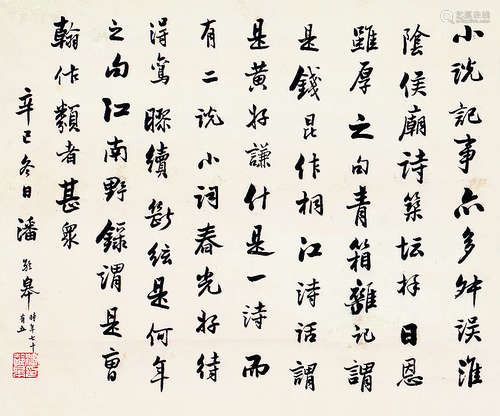 小说記事亦多舛误淮
陰侯廟詩築坛拜日恩
雖厚之句青箱雜记謂
是錢昆作桐江诗话謂
是黄好謙什是一诗而
有二说小词春光好待
得鸾膠續斷弦是何年
之句江南野録謂是曹
翰作類者甚眾
辛巳冬日潘龄皋時年七十有五